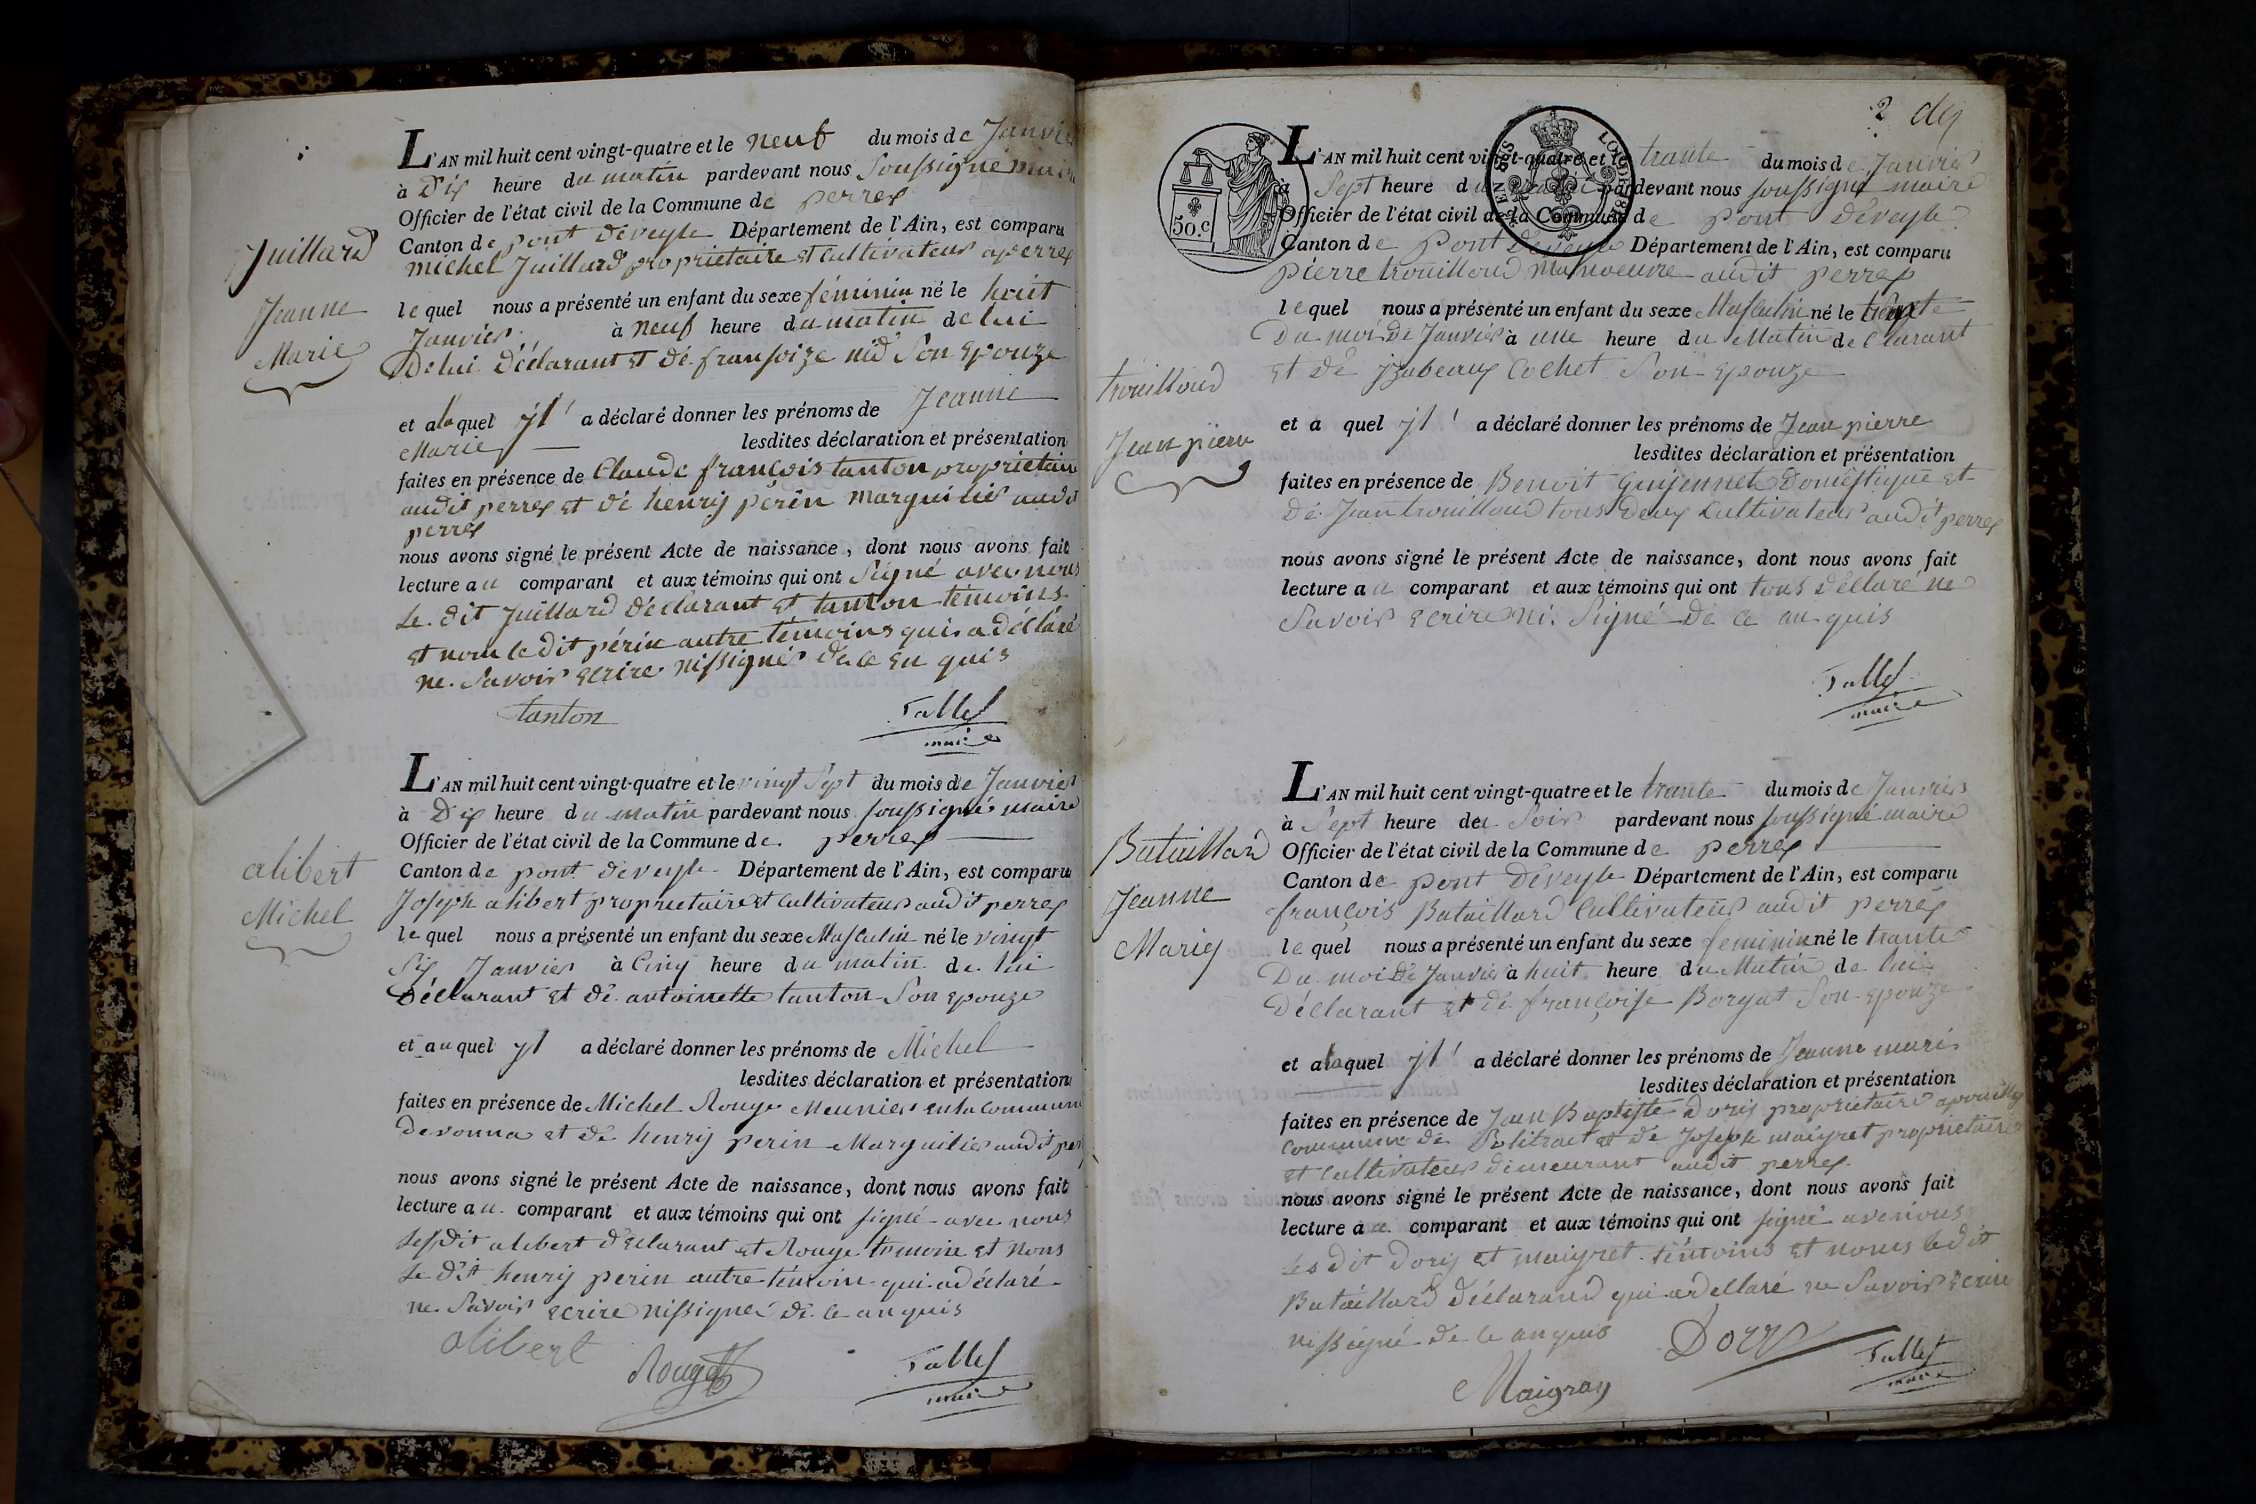 L'AN mil huit cent vingt-quatre et le neuf du mois de Janvier
à dix heure du matin pardevant nous Soussigné maire
Officier de l'état civil de la Commune de perrex
Canton de pont deveyle Département de l'Ain, est comparu
michel Juillard propriétaire et Cultivateur a perrex
Juillard
Jeanne
Marie
le quel nous a présenté un enfant du sexe féminin né le huit
Janvier à neuf heure du matin de lui
De lui déclarant et de fransoize nid Son Epouze
et a la quel yl a déclaré donner les prénoms de Jeanne
Marie lesdites déclaration et présentation
faites en présence de Claude françois tanton propriétaire
audit perrex et de henry périn marguilier audit
perrex
nous avons signé le présent Acte de naissance, dont nous avons fait
lecture au comparant et aux témoins qui ont Signé avec nous
Le dit Juillard déclarant et tanton témoins
et nom le dit périn autre témoins qui a déclaré
ne Savoir Ecrire ni ssigner de ce En quis
tanton
Tallet
maire
L'AN mil huit cent vingt-quatre et le vingt Sept du mois de Janvier
à Dix heure du matin pardevant nous soussigné maire
Officier de l'état civil de la Commune de perrex
Canton de pont deveyle Département de l'Ain, est comparu
Joseph alibert propriétaire et Cultivateur audit perrex
alibert
Michel
le quel nous a présenté un enfant du sexe Masculin né le vingt
Six Janvier à Cinq heure du matin de lui
Déclarant et de antoinette tanton Son epouze
et au quel yl a déclaré donner les prénoms de Michel
lesdites déclaration et présentation
faites en présence de Michel Rouge Meunier en la Commune
de vonna et de henry perin Marguilier audit per
nous avons signé le présent Acte de naissance, dont nous avons fait
lecture au comparant et aux témoins qui ont signé avec nous
Lesdit alibert déclarant et Rouge temoin et nons
Le dit henry perin autre témoin qui a déclaré
ne Savoir ecrire ni ssigner de ce an quis
alibert
Rouge
Tallet
maire
2 de
50.c
L'AN mil huit cent vingt-quatre et le trante du mois de Janvier
à Sept heure du pardevant nous soussigné maire
Officier de l'état civil de la Commune de pont deveyle
Canton de Pont deveyle Département de l'Ain, est comparu
pierre trouilloud Manoeuvre audit perrex
le quel nous a présenté un enfant du sexe Masculin né le trante
Du moi de Janvier à une heure du Matin de Clarant
et de Jzabeaux Cochet Son epouze
trouilloud
Jean pierre
et a quel yl a déclaré donner les prénoms de Jean pierre
lesdites déclaration et présentation
faites en présence de Benoit Guyennet Domestique et
de Jean trouilloud tous deux Cultivateur audit perrex
nous avons signé le présent Acte de naissance, dont nous avons fait
lecture au comparant et aux témoins qui ont tous déclaré ne
Savoir ecrire ni Signé de ce an quis
Tallet
maire
L'AN mil huit cent vingt-quatre et le trante du mois de Janvier
à Sept heure du Soir pardevant nous soussigné maire
Officier de l'état civil de la Commune de perrex
Canton de pont deveyle Département de l'Ain, est comparu
françois Bataillard Cultivateur audit perrex
Bataillard
Jeanne
Marie
le quel nous a présenté un enfant du sexe feminin né le trante
Du moi de Janvier à huit heure du Matin de lui
déclarant et de françoise Boryat Son epouze
et a la quel yl a déclaré donner les prénoms de Jeanne marie
lesdites déclaration et présentation
faites en présence de Jean Baptiste Dory propriétaire a
commune de et de Joseph maigret propriétaire
et Cultivateur demeurant audit perrex
nous avons signé le présent Acte de naissance, dont nous avons fait
lecture au comparant et aux témoins qui ont signé avec nous
Les dit Dory et maigret témoins et noms le dit
Bataillard déclarand qui a dellaré ne Savoir ecrire
ni ssigné de ce an quis
Dory
Tallet
maire
Maigray